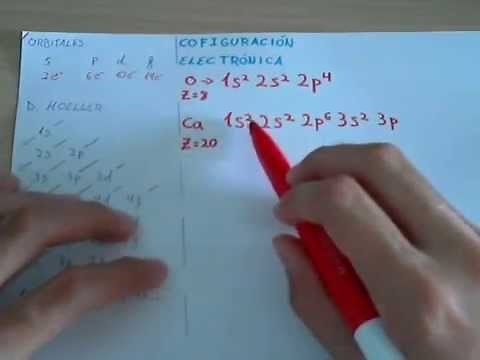 ORBITALES
s p d f
2e⁻ 6e⁻ 10e⁻ 14e⁻
D. MOELLER
1s
2s 2p
3s 3p 3d
4d 4f
COFIGURACIÓN
ELECTRÓNICA
O → 1s² 2s² 2p⁴
Z=8
Ca 1s² 2s² 2p⁶ 3s² 3p
Z=20